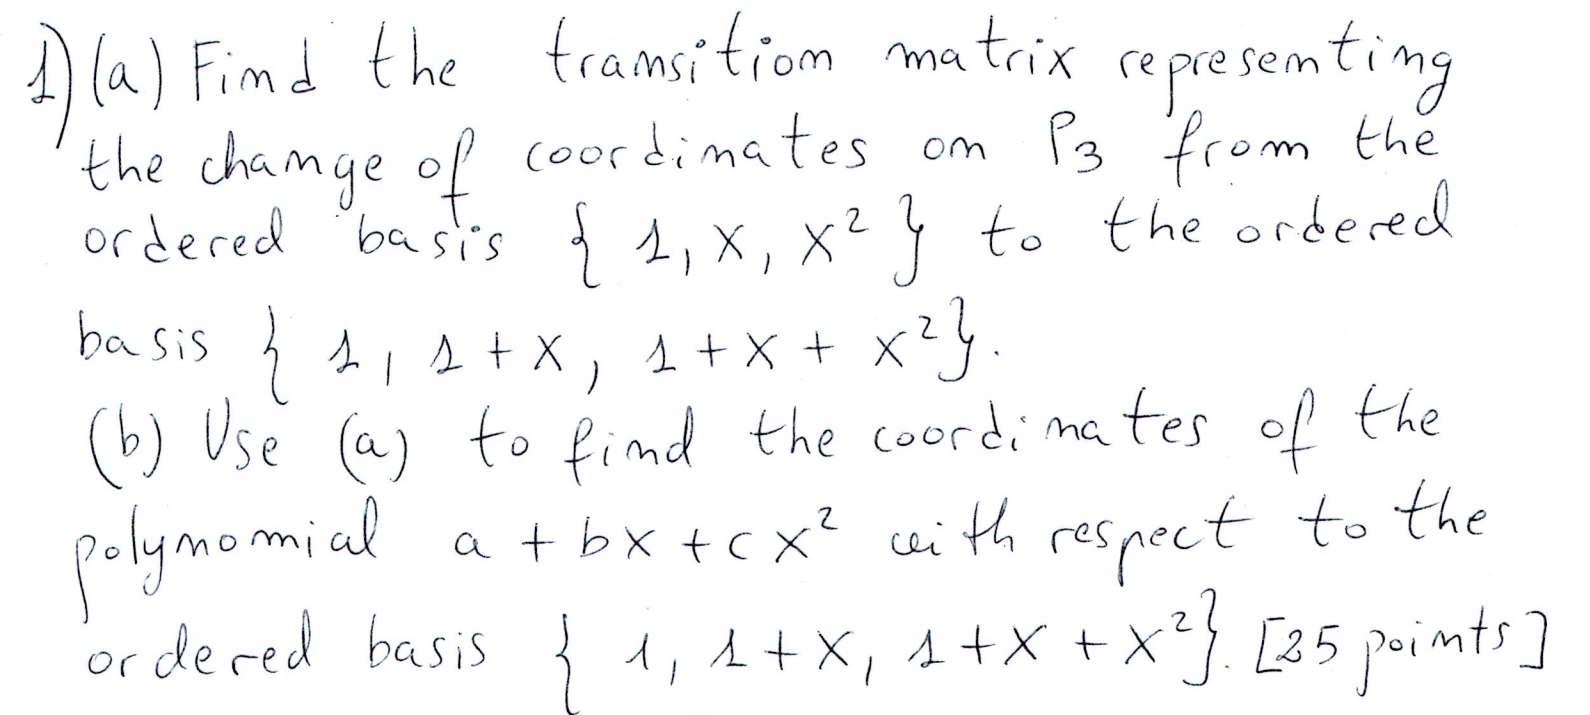 1) (a) Find the transition matrix representing
the change of coordinates on P₃ from the
ordered basis { 1, x, x² } to the ordered
basis { 1, 1 + x, 1 + x + x² }.
(b) Use (a) to find the coordinates of the
polynomial a + bx + cx² with respect to the
ordered basis { 1, 1 + x, 1 + x + x² }. [25 points]